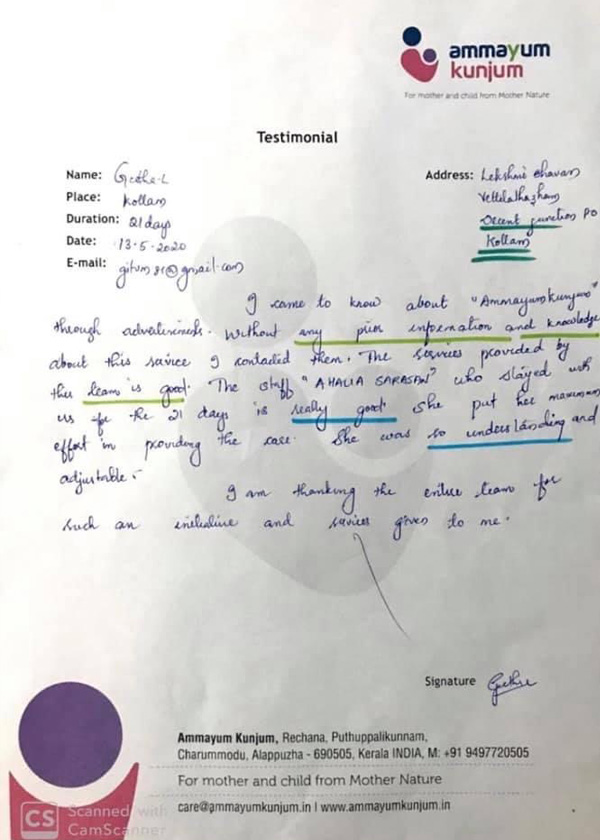 ammayum
kunjum
For mother and child from Mother Nature
Testimonial
Name: Geetha-L
Place: Kollam
Duration: 21 days
Date: 13-5-2020
E-mail: @gmail.com
Address: Lekshmi Bhavan
Vettilathazham
Decent junction PO
Kollam
I came to know about "Ammayumkunjum"
through advertisements. Without any prior information and knowledge
about this service I contacted them. The services provided by
this team is good. The staff "AHALIA SARASAN" who stayed with
us for the 21 days is really good. She put her maximum
effort in providing the care. She was so understanding and
adjustable.
I am thanking the entire team for
such an initiative and services given to me.
Signature Geetha
Ammayum Kunjum, Rechana, Puthuppalikunnam,
Charummodu, Alappuzha - 690505, Kerala INDIA, M: +91 9497720505
For mother and child from Mother Nature
care@ammayumkunjum.in I www.ammayumkunjum.in
CS Scanned with
CamScanner